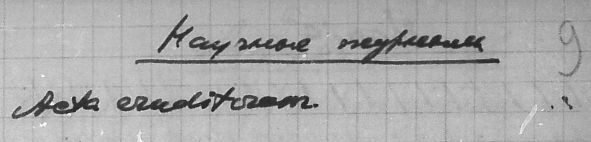 Научные журналы 9
Acta eruditorum.